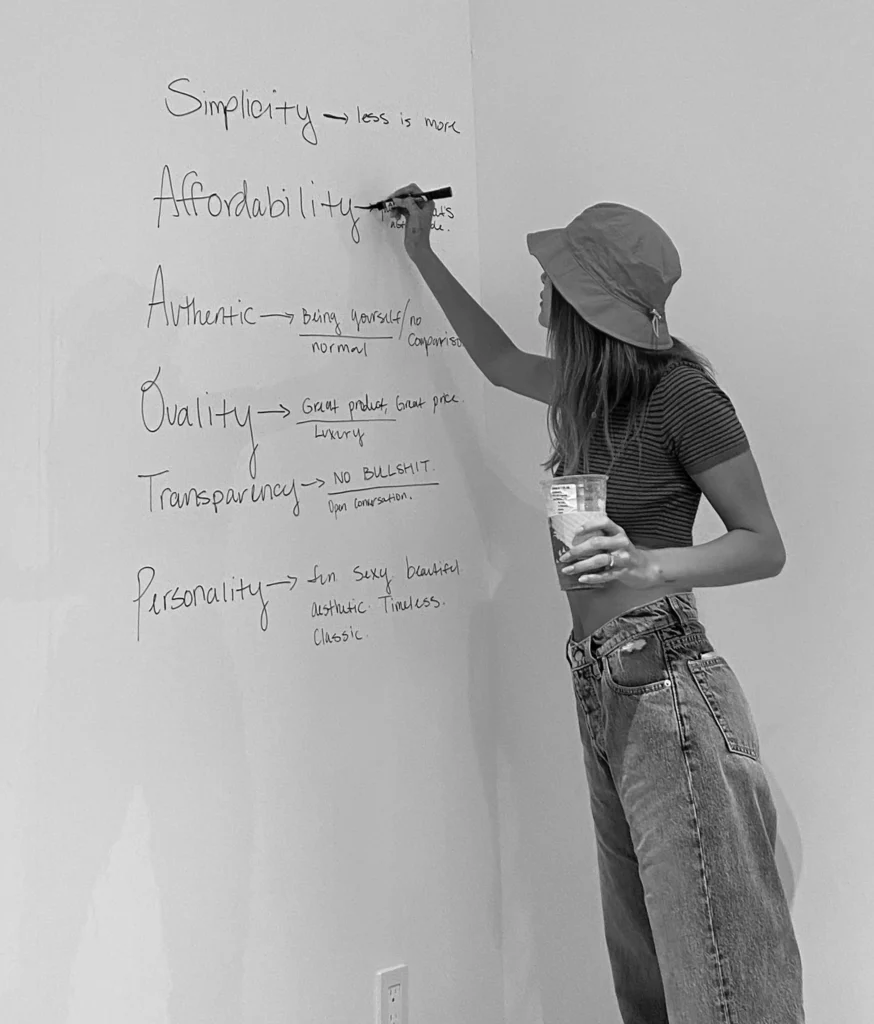 Simplicity → less is more
Affordability
Authentic → Being yourself/no
normal
Quality → Great product, Great price.
Luxury
Transparency → NO BULLSHIT.
Open conversation.
Personality → fun sexy beautiful
aesthetic. Timeless.
Classic.